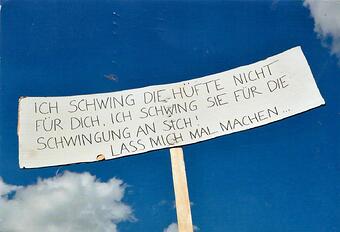 ICH SCHWING DIE HÜFTE NICHT
FÜR DICH. ICH SCHWING SIE FÜR DIE
SCHWINGUNG AN SICH!
LASS MICH MAL MACHEN...